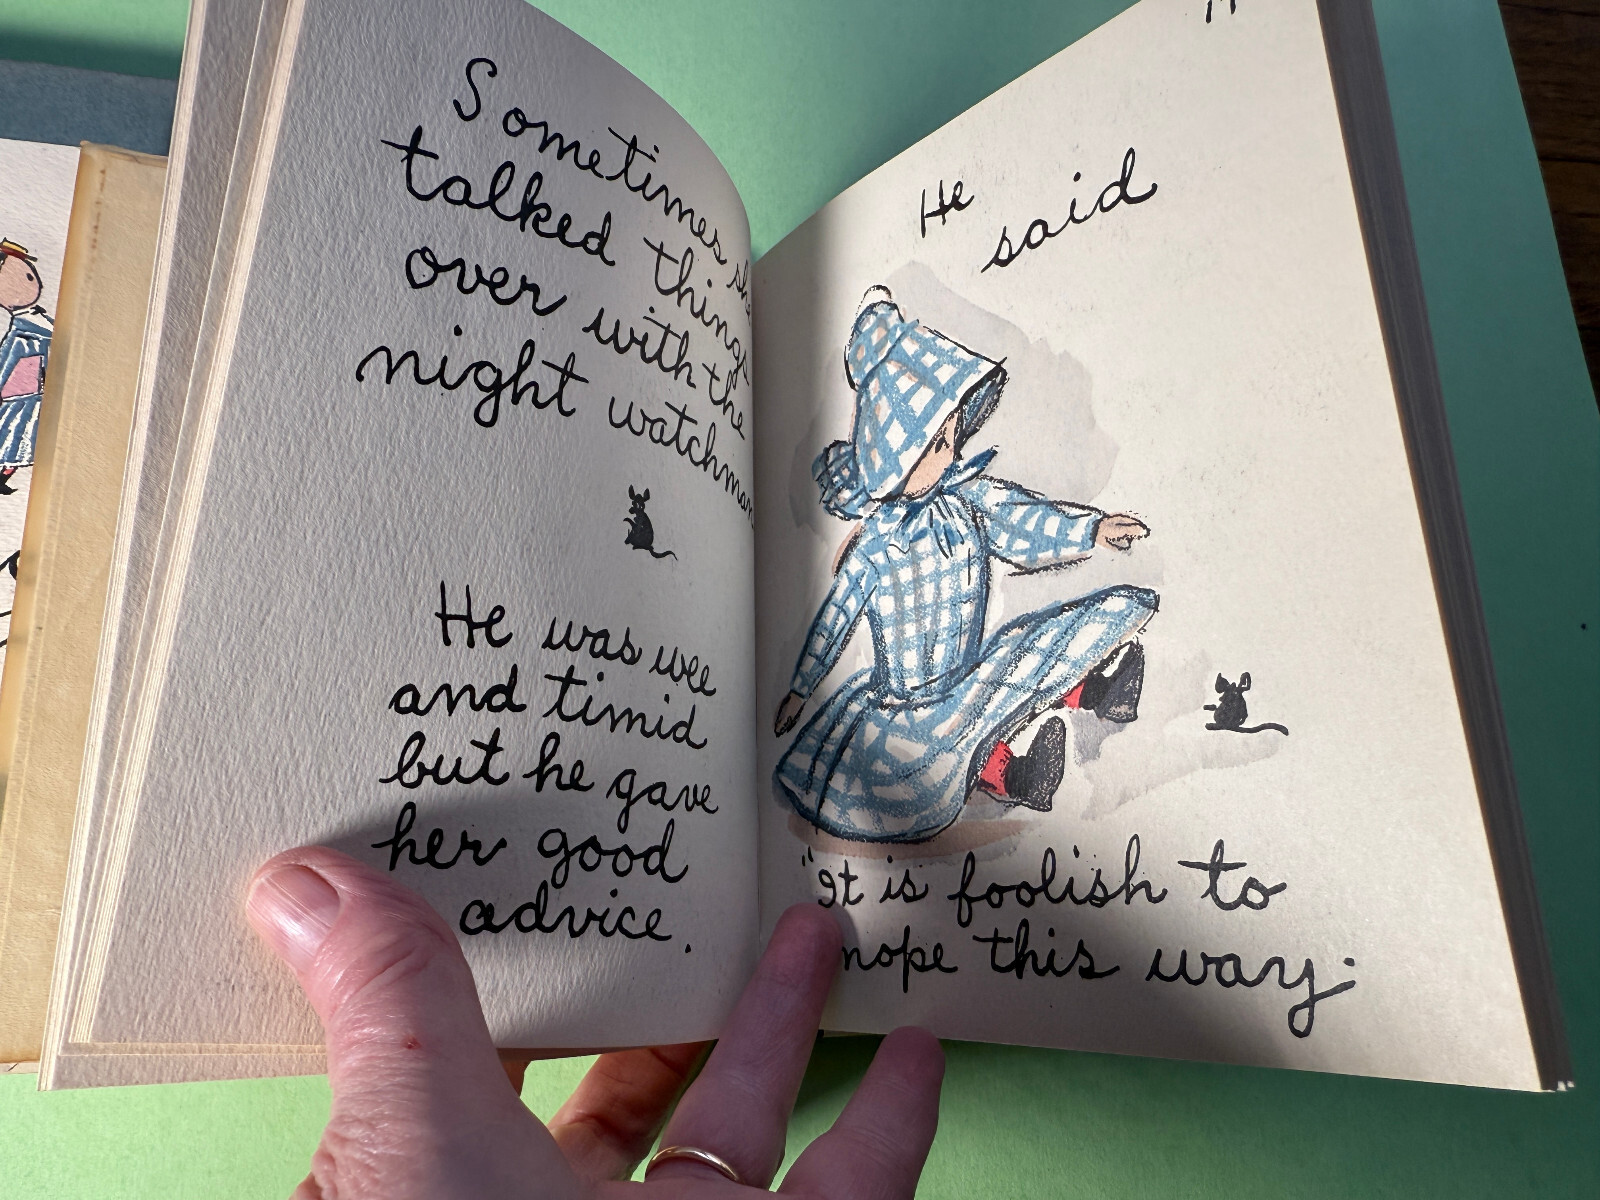 Sometimes she
talked things
over with the
night watchman
He was wee
and timid
but he gave
her good
advice.
He
said
"It is foolish to
mope this way.